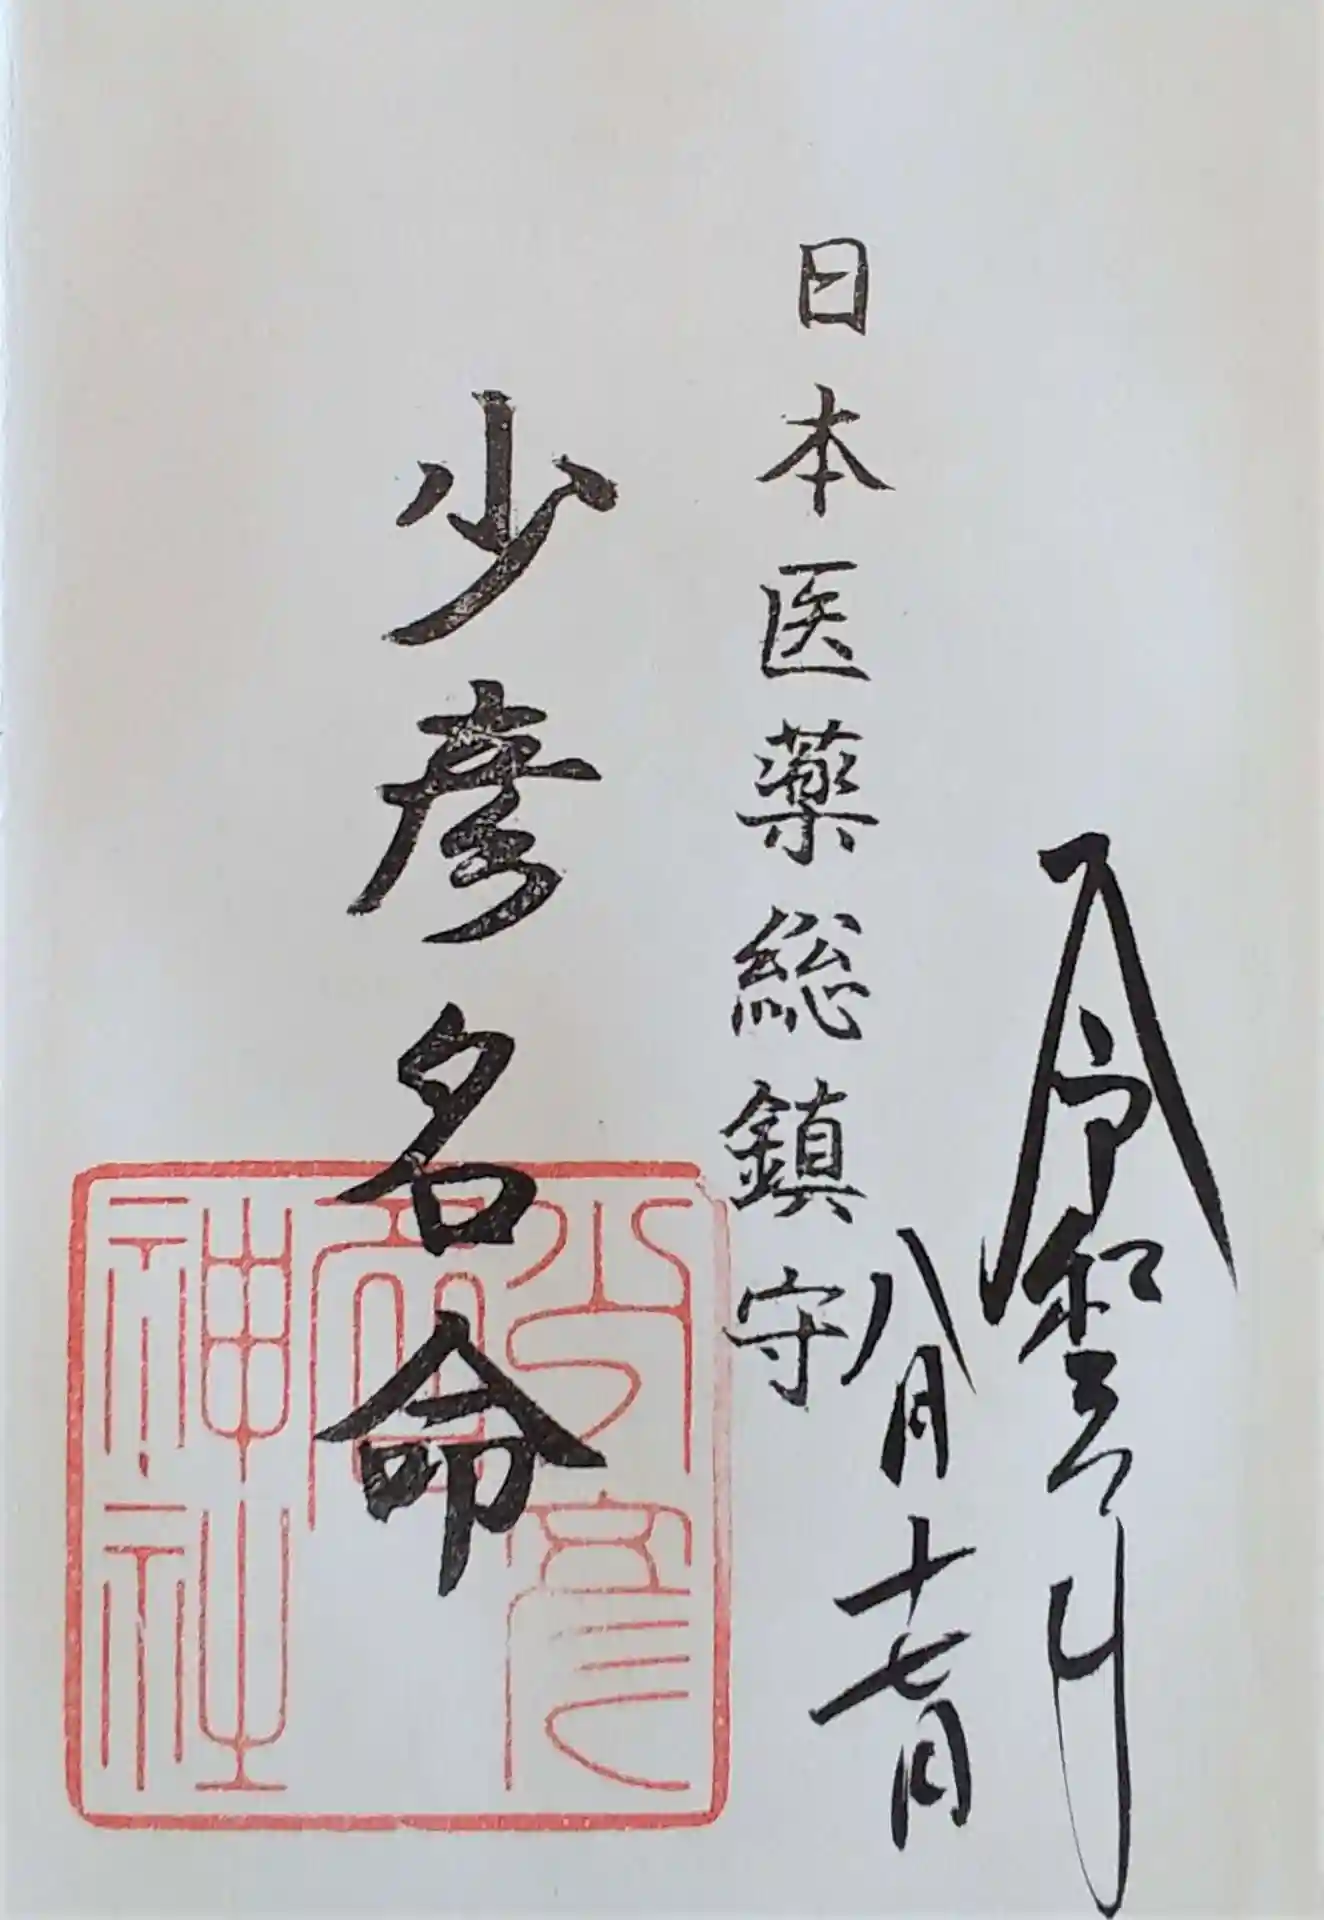 令和年
八月十七日
日本医薬総鎮守
少彦名命
少彦
名
神社